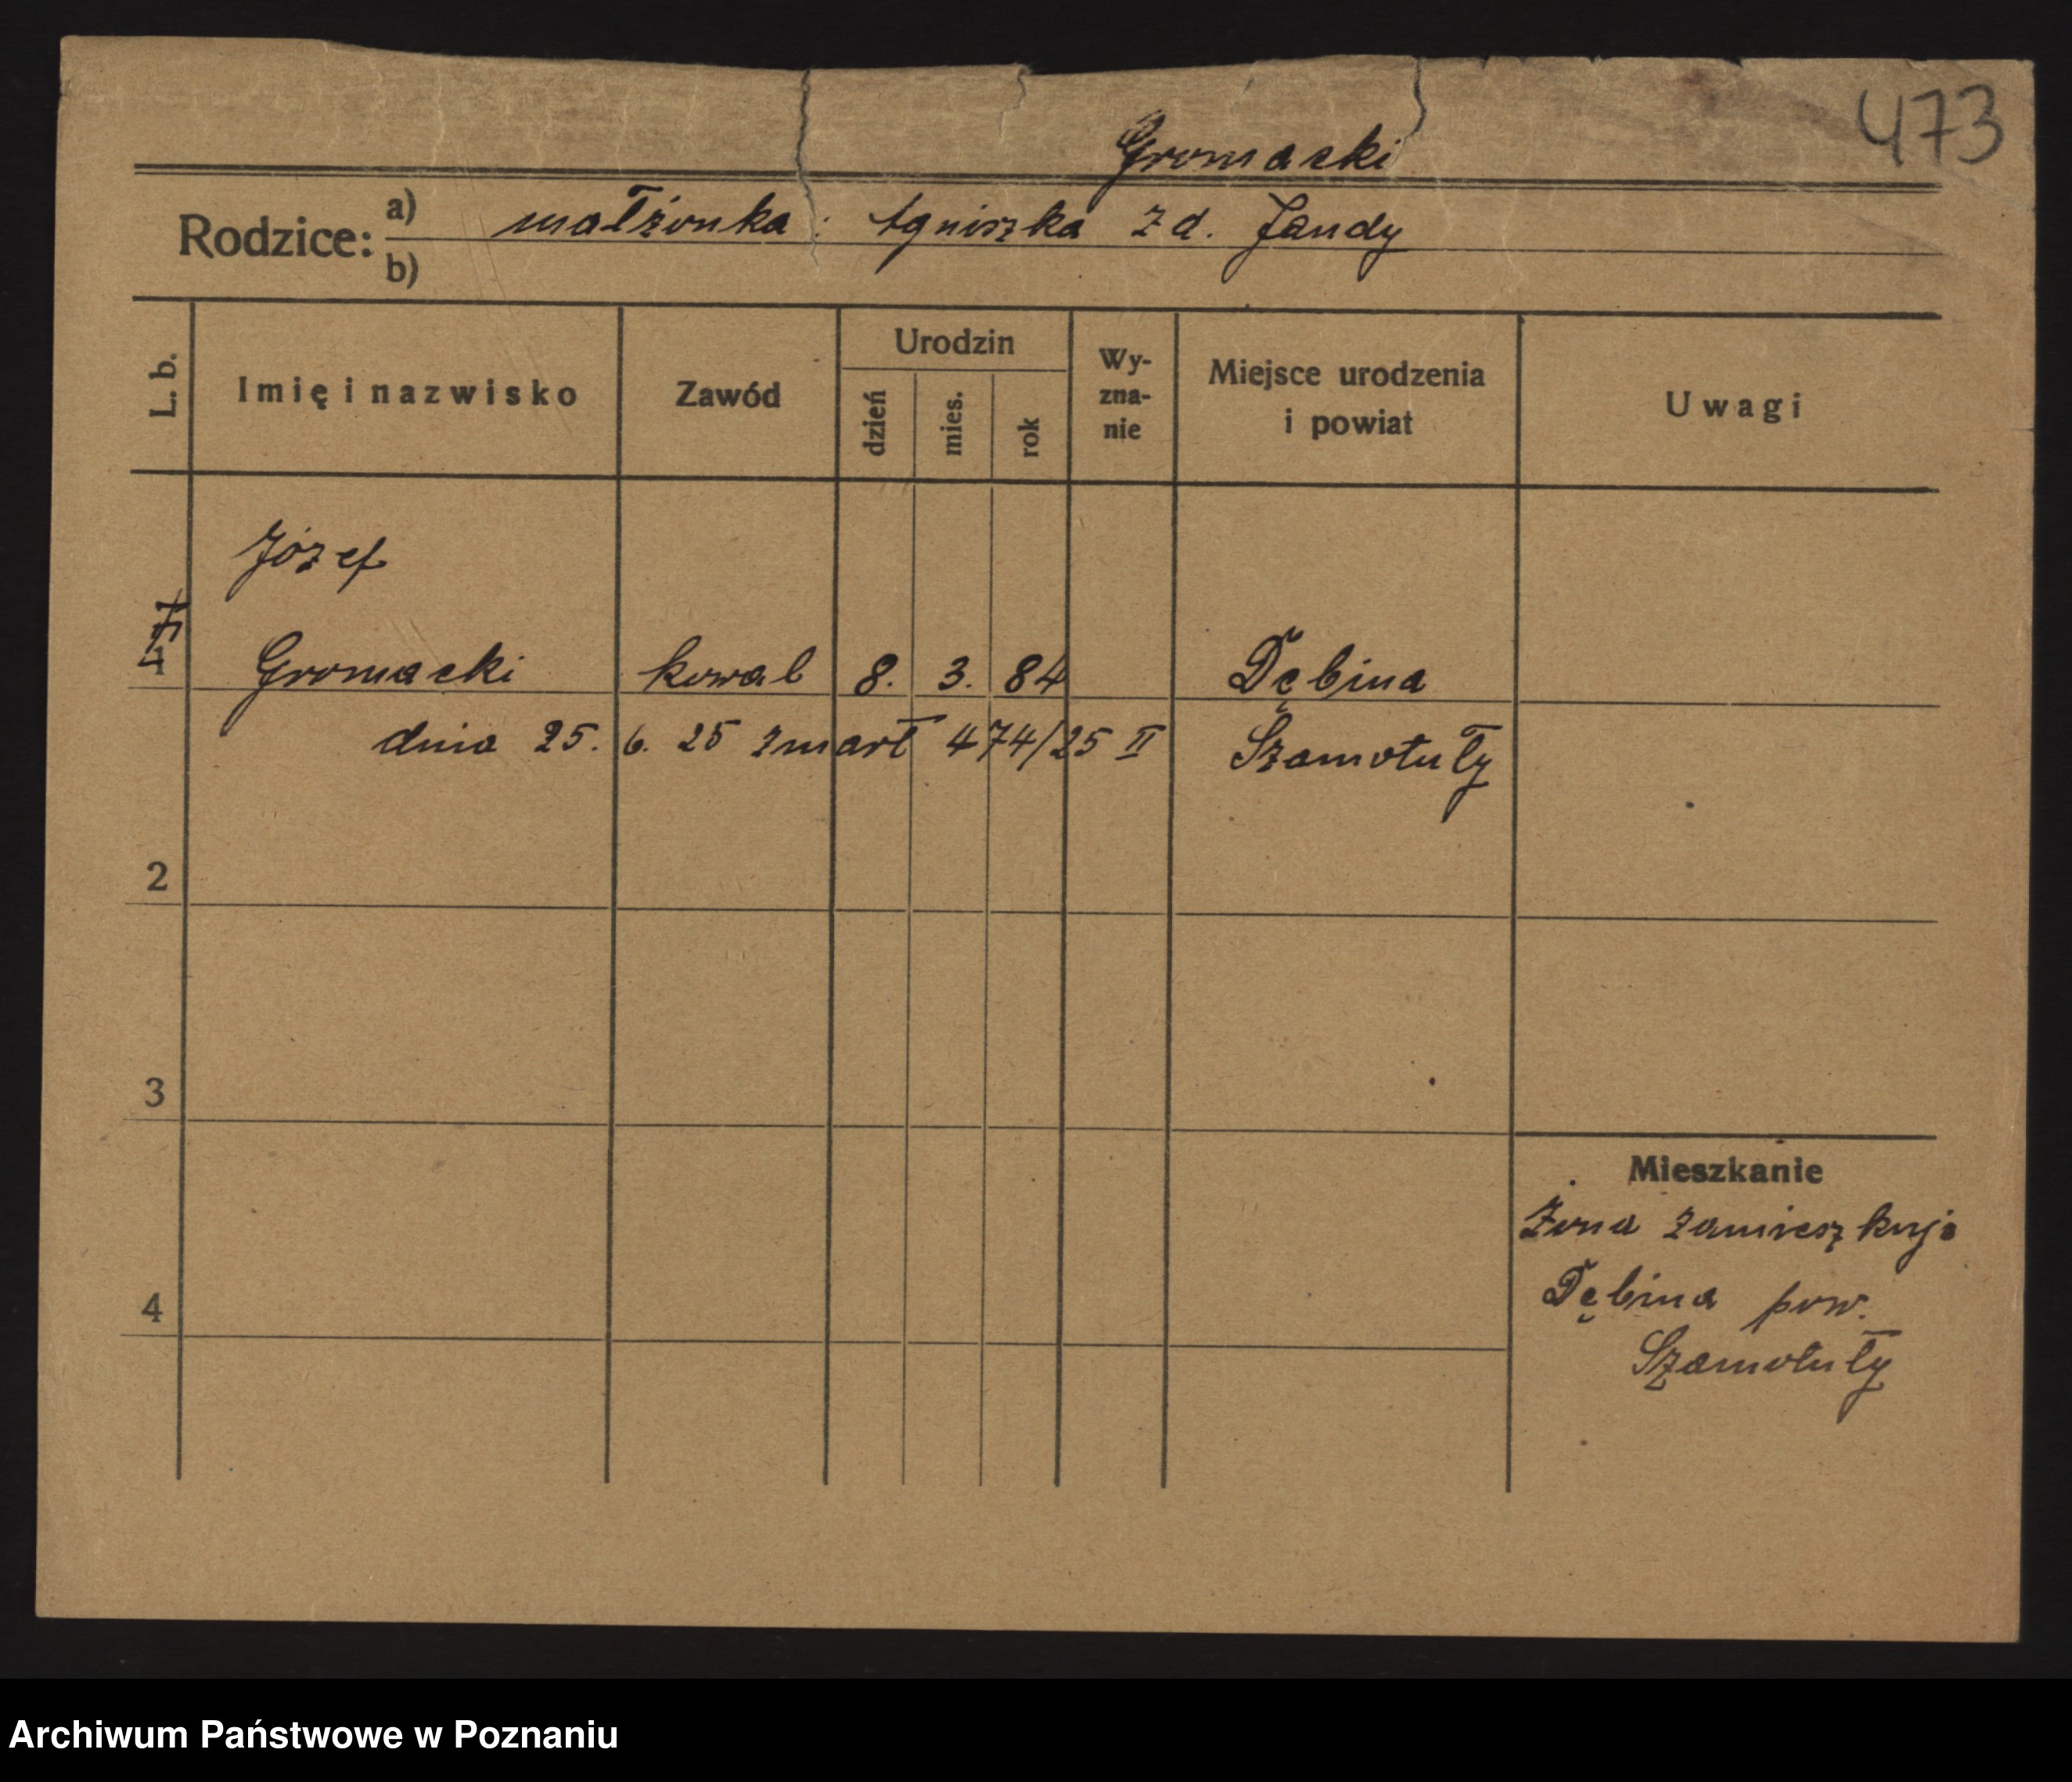 473
Gromacki
Rodzice: a) małżonka: Agniszka z d. Jandy
b)
L. b. Imię i nazwisko Zawód Urodzin dzień mies. rok Wy-zna-nie Miejsce urodzenia i powiat Uwagi
Józef
1 Gromacki kowal 8. 3. 84 Dębina
dnia 25. 6. 25 zmarł 474/25 II Szamotuły
2
3
Mieszkanie
Żona zamieszkuje
4 Dębina pow.
Szamotuły
Archiwum Państwowe w Poznaniu